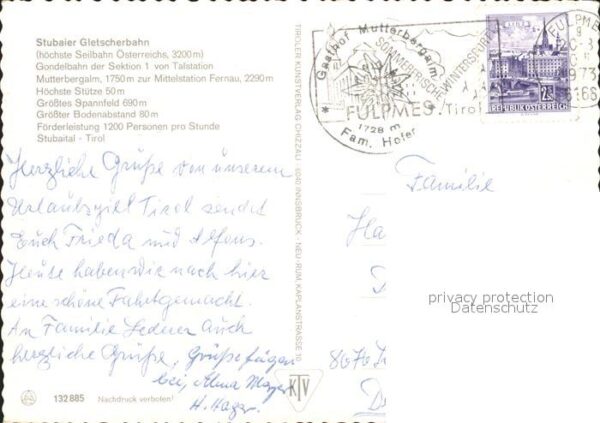 Stubaier Gletscherbahn
(höchste Seilbahn Österreichs, 3200 m)
Gondelbahn der Sektion 1 von Talstation
Mutterbergalm, 1750 m zur Mittelstation Fernau, 2290 m
Höchste Stütze 50 m
Größtes Spannfeld 690 m
Größter Bodenabstand 80 m
Förderleistung 1200 Personen pro Stunde
Stubaital - Tirol
Herzliche Grüße von unserem
Urlaubsziel Tirol sendet
Euch Frieda und Alfons.
Heute haben wir nach hier
eine schöne Fahrt gemacht.
An Familie Lederer auch
herzliche Grüße, Grüße fügen
bei, Alma
H. Hager.
132 885
Nachdruck verboten!
TIROLER KUNSTVERLAG CHIZZALI · 6020 INNSBRUCK - NEU-RUM, KAPLANSTRASSE 10
KTV
Gasthof Mutterbergalm
1728 m
Fam. Hofer
SOMMERFRISCHE
WINTERSPORT
FULPMES, Tirol
FULPMES
1973
6166
2.50
REPUBLIK ÖSTERREICH
Familie
Ha
8070 In
privacy protection
Datenschutz